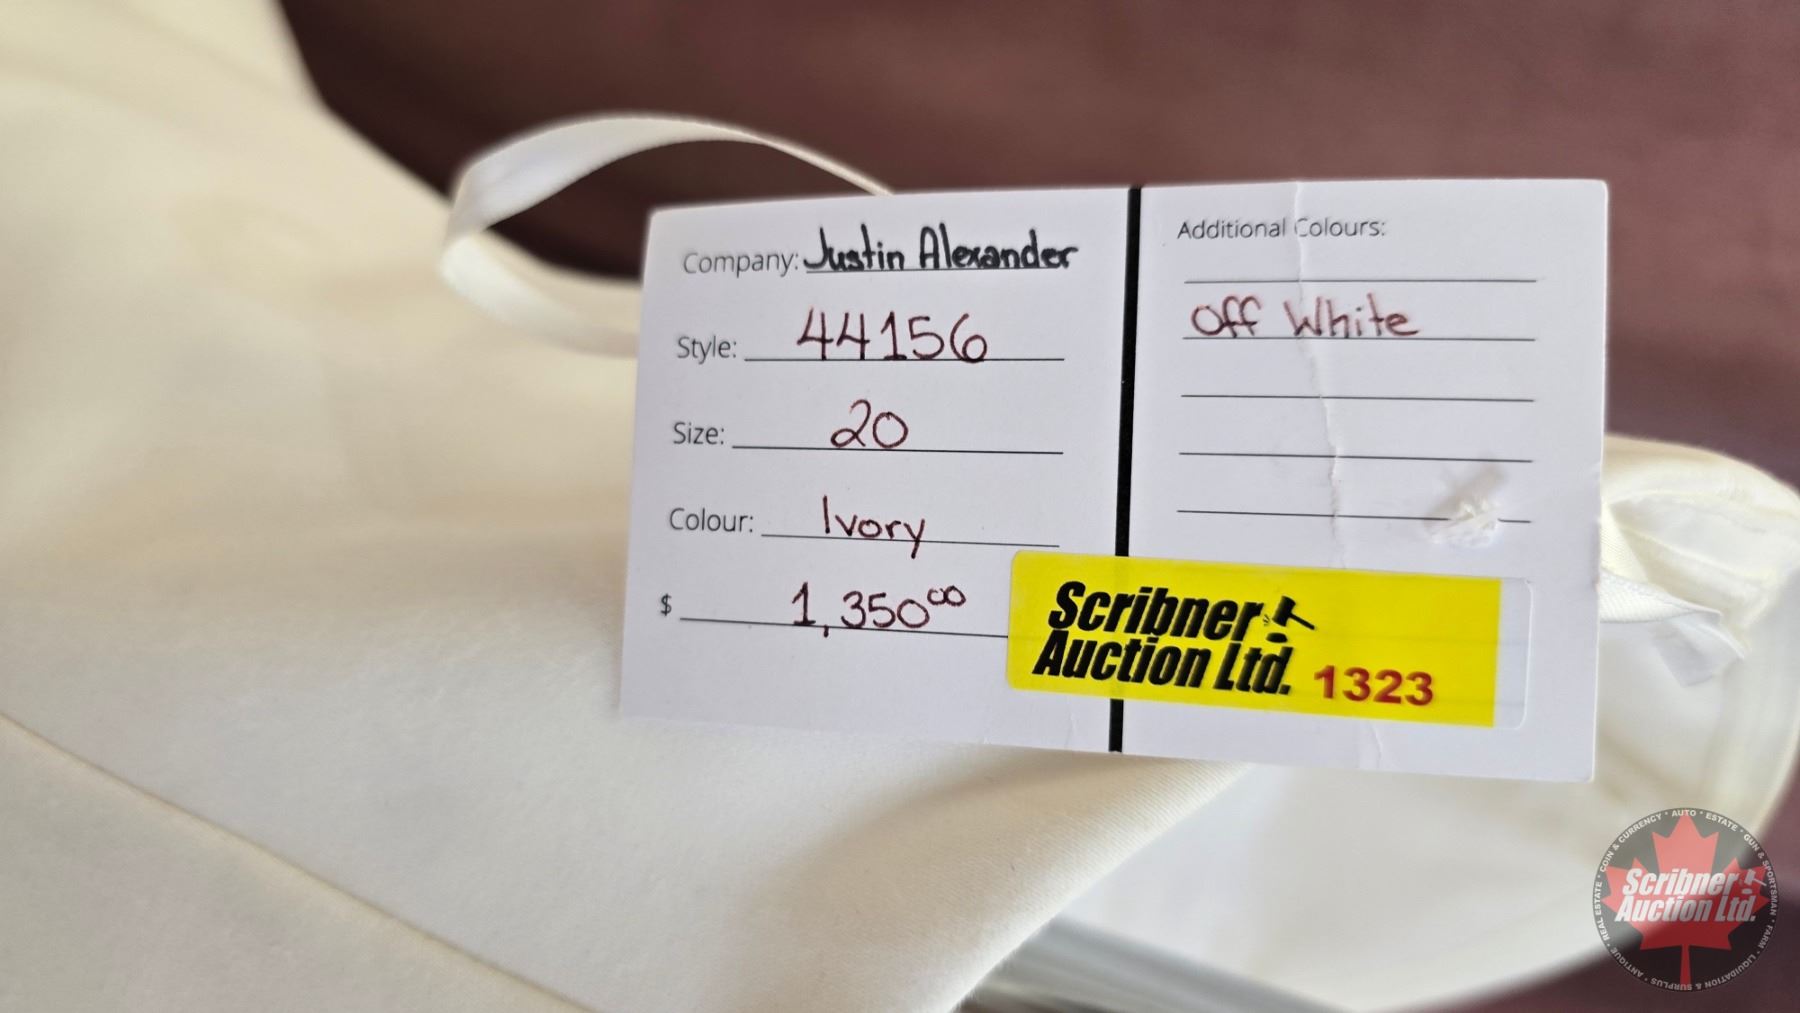 Company: Justin Alexander
Style: 44156
Size: 20
Colour: Ivory
$ 1,350.00
Additional Colours:
Off White
Scribner
Auction Ltd. 1323
Scribner
Auction Ltd.
ANTIQUE • REAL ESTATE • COIN & CURRENCY • AUTO • ESTATE • GUN & SPORTSMAN • FARM • LIQUIDATION & SURPLUS •